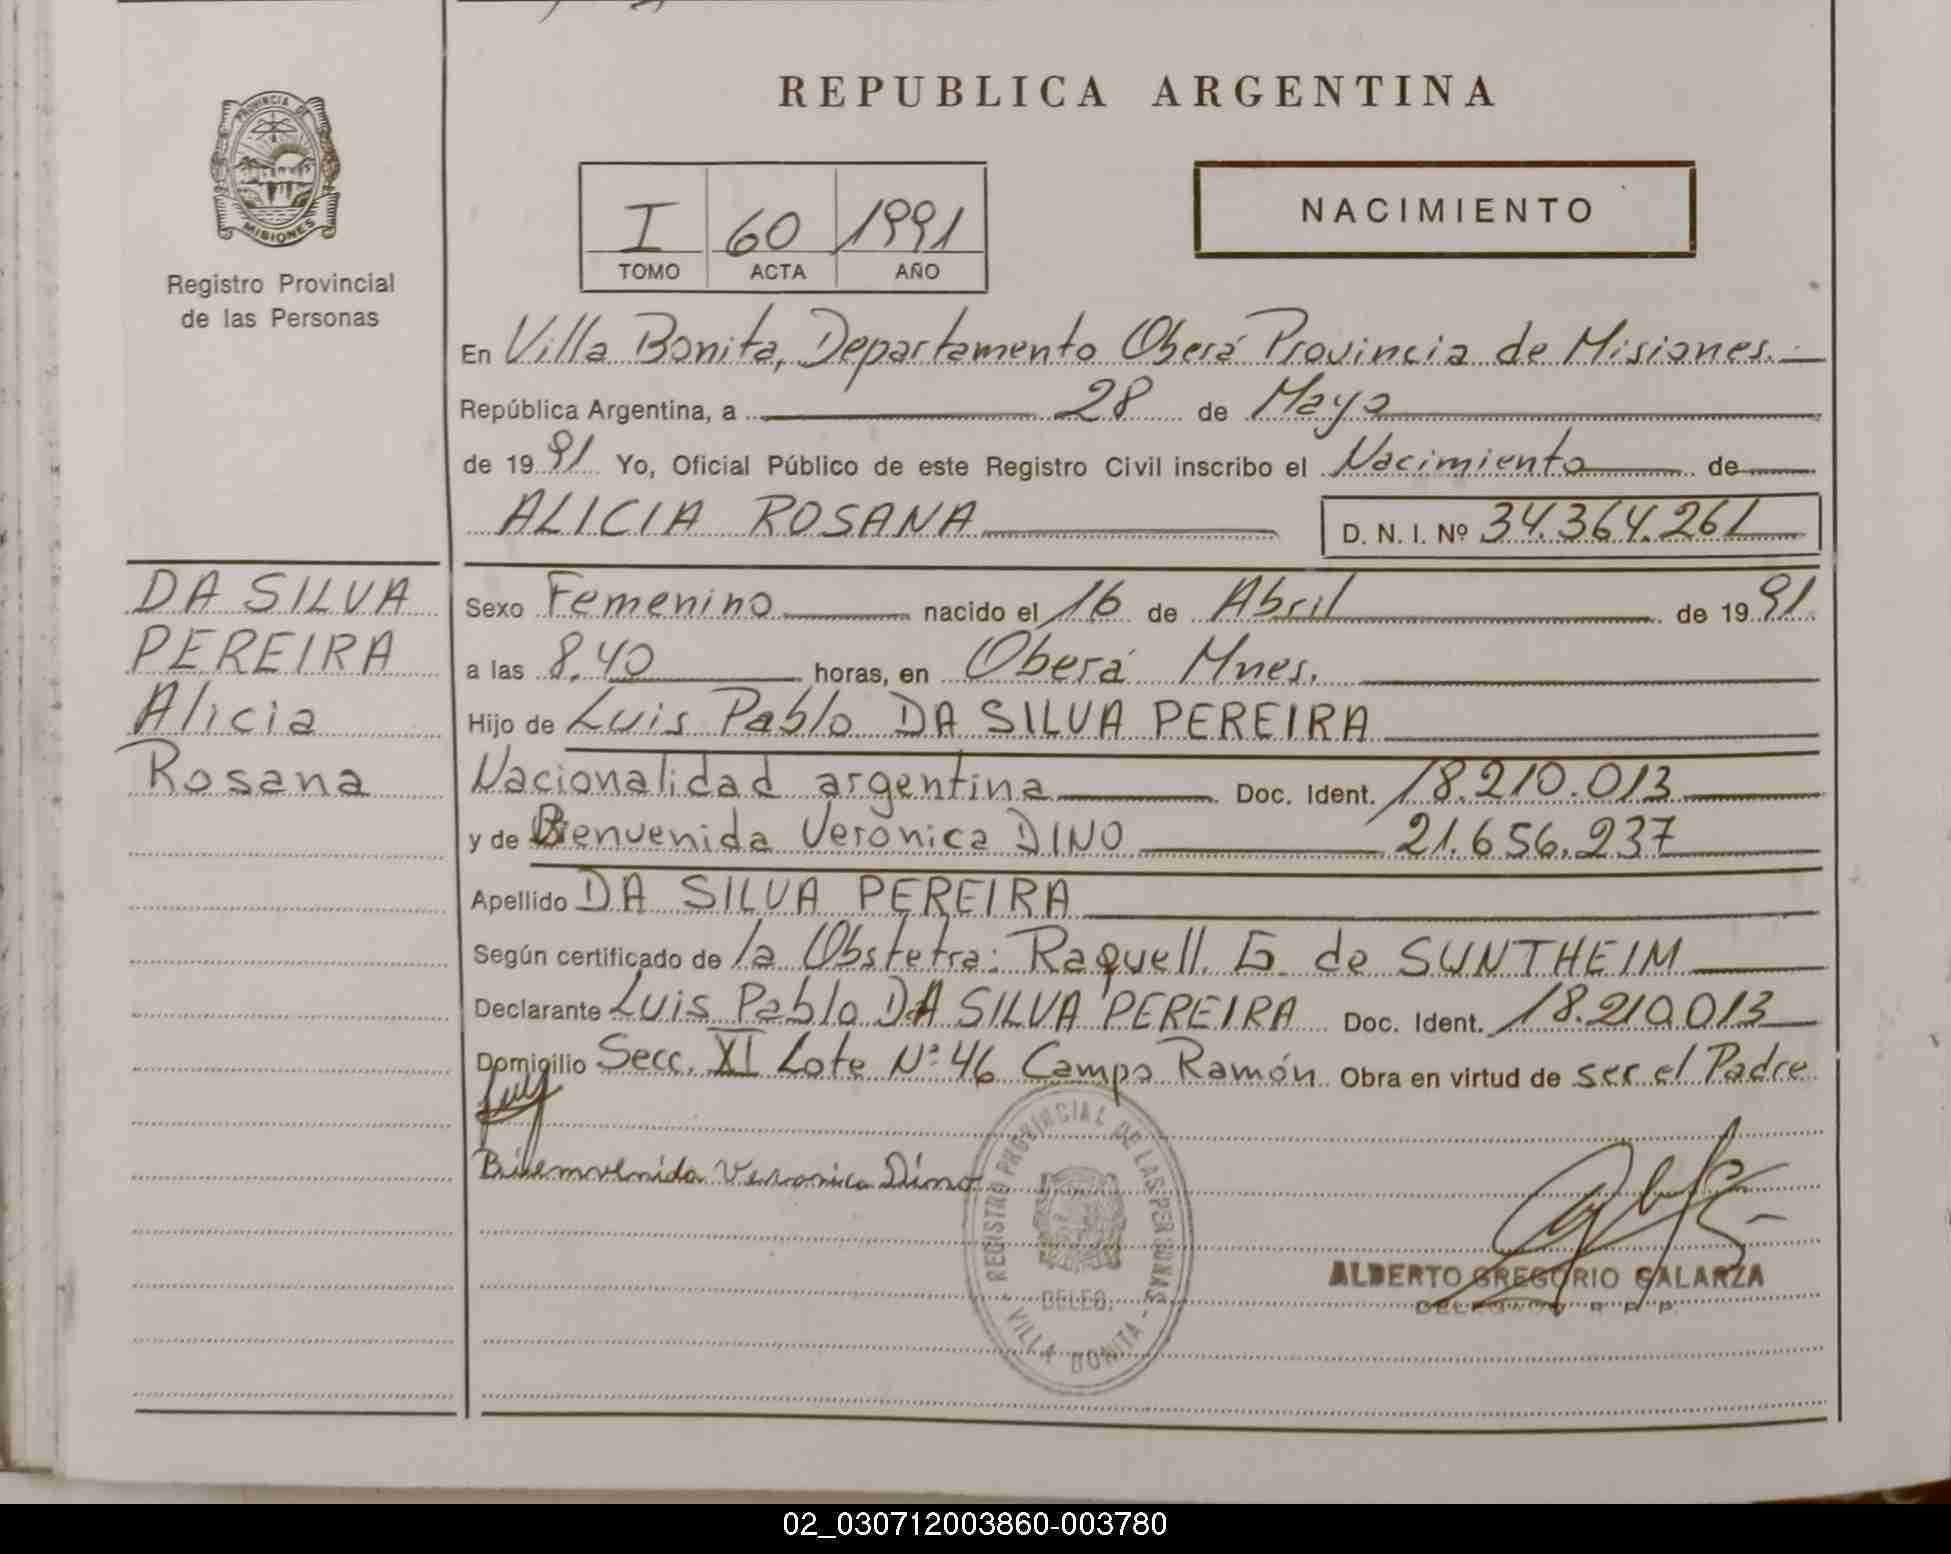 REPUBLICA ARGENTINA
PROVINCIA DE
MISIONES
Registro Provincial
de las Personas
I 60 1991
TOMO ACTA AÑO
NACIMIENTO
En Villa Bonita, Departamento Oberá Provincia de Misiones.
República Argentina, a 28 de Mayo
de 19 91 Yo, Oficial Público de este Registro Civil inscribo el Nacimiento de
ALICIA ROSANA D. N. I. Nº 34.364.261
DA SILVA
PEREIRA
Alicia
Rosana
Sexo Femenino nacido el 16 de Abril de 19 91
a las 8,40 horas, en Oberá Mnes.
Hijo de Luis Pablo DA SILVA PEREIRA
Nacionalidad argentina Doc. Ident. 18.210.013
y de Bienvenida Verónica DINO 21.656.237
Apellido DA SILVA PEREIRA
Según certificado de la Obstetra: Raquell. G. de SUNTHEIM
Declarante Luis Pablo DA SILVA PEREIRA Doc. Ident. 18.210.013
Domicilio Secc. XI Lote Nº 46 Campo Ramón Obra en virtud de ser el Padre
Bienvenida Veronica Dino
REGISTRO PROVINCIAL DE LAS PERSONAS
DELEG.
- VILLA BONITA -
ALBERTO GREGORIO GALARZA
DELEGADO R. P. P.
02_030712003860-003780